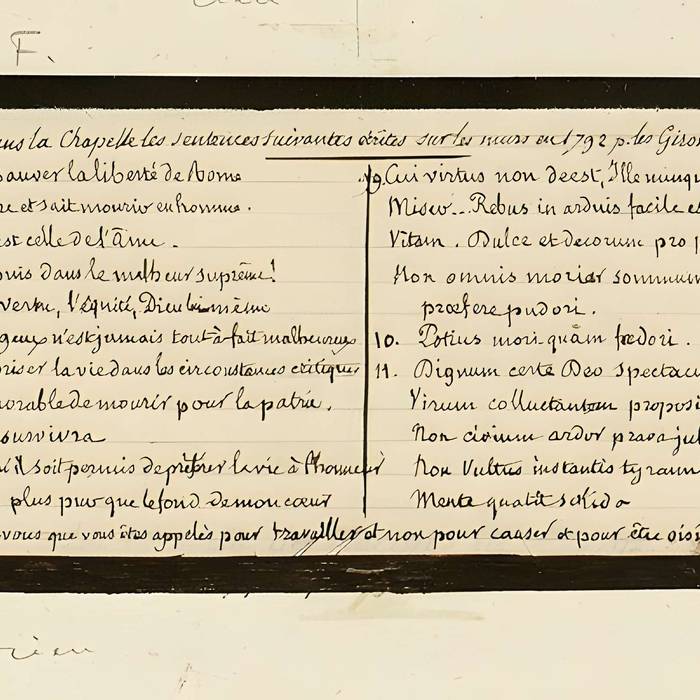 F.
la Chapelle les sentences suivantes écrites sur les murs en 1792 p. les
sauver la liberté de Rome
et sait mourir en homme.
est celle de l'Âme.
dans le malheur suprême!
l'Équité, Dieu lui même
n'est jamais tout à fait malheureux
la vie dans les circonstances critiques
de mourir pour la patrie.
survivra
il soit permis de préférer la vie à l'honneur
plus pur que le fond de mon cœur
vous que vous êtes appelés pour travailler et non pour causer et pour être
9. Cui virtus non deest, Ille
Miser... Rebus in arduis facile
Vitam. Dulce et decorum pro
Non omnis moriar summum
præfere pudori.
10. Potius mori quam fœdari.
11. Dignum certe Deo
Virum colluctantem
Non civium ardor prava
Non Vultus instantis
Mente quatit solida